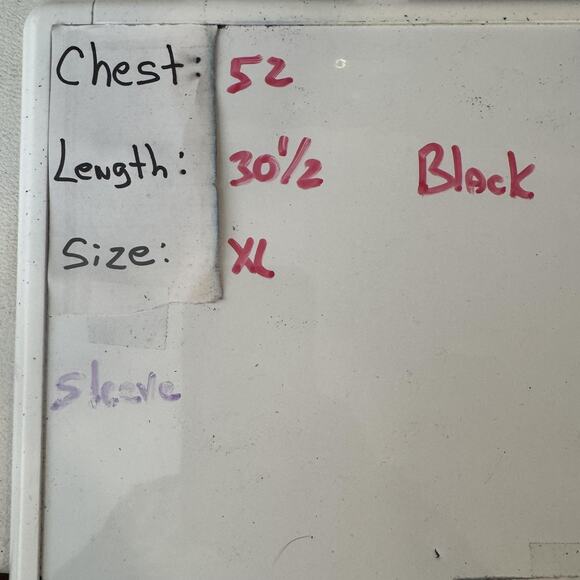 Chest: 52
Length: 30 1/2 Black
Size: XL
Sleeve